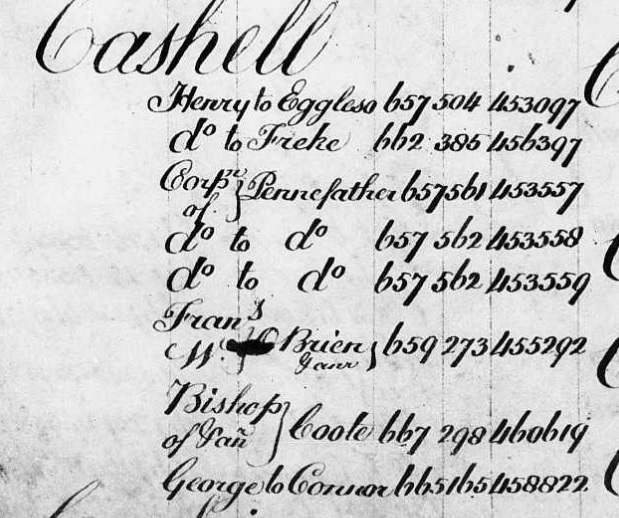 Cashell
Henry to Eggleso 657 504 453097
do to Freke 662 385 456397
Corpn of } Pennefather 657 561 453557
do to do 657 562 453558
do to do 657 562 453559
Frans
W. O Brien & anr } 659 273 455292
Bishop of } Coote 667 298 460619
George to Connor 665 165 458822